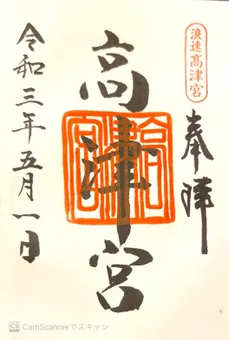 浪速高津宮
奉拝
高津宮
高津宮
令和三年五月一日
CamScannerでスキャン